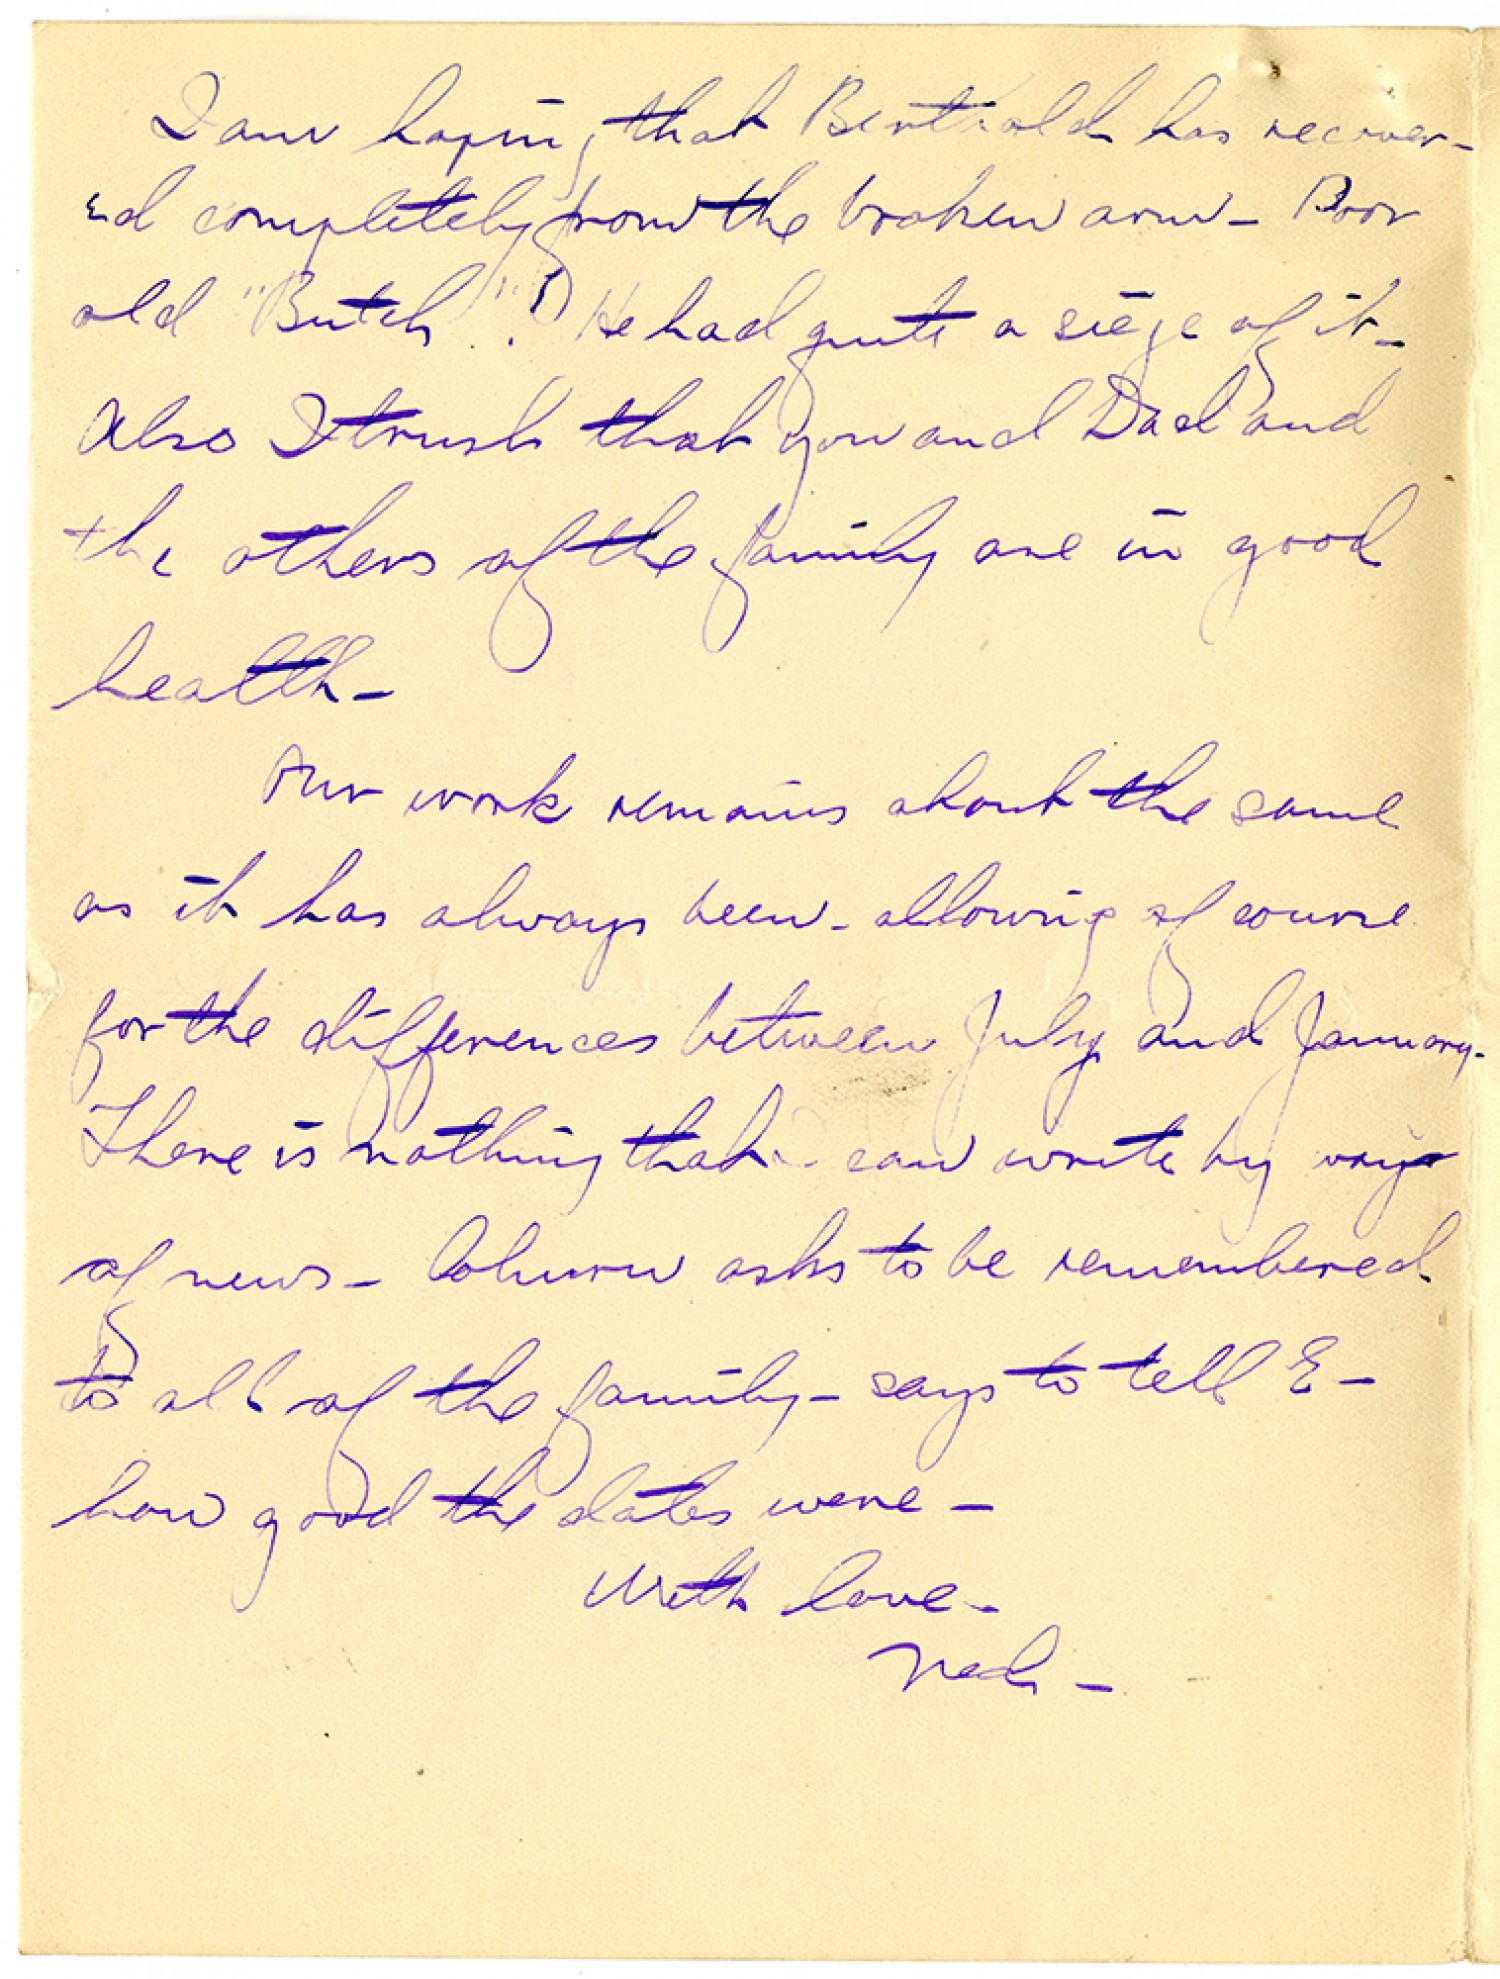 I am hoping that Berthold has recover-
ed completely from the broken arm - Poor
old "Butch"! He had quite a siege of it -
Also I trust that you and Dad and
the others of the family are in good
health -
Our work remains about the same
as it has always been - allowing of course
for the differences between July and January.
There is nothing that I can write by way
of news - Coburn asks to be remembered
to all of the family - says to tell E -
how good the dates were -
With love -
Ned -